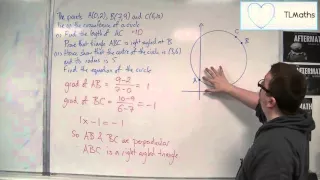 TLMaths
The points A(0,2), B(7,9) and C(6,10)
lie on the circumference of a circle
(i) Find the length of AC =10
Prove that triangle ABC is right angled at B
(ii) Hence show that the centre of the circle is (3,6)
and its radius is 5
Find the equation of the circle
grad of AB = 9-2 / 7-0 = 1
grad of BC = 10-9 / 6-7 = -1
1x-1=-1
So AB & BC are perpendicular
ABC is a right angled triangle
C
B
A
AFTERMATH